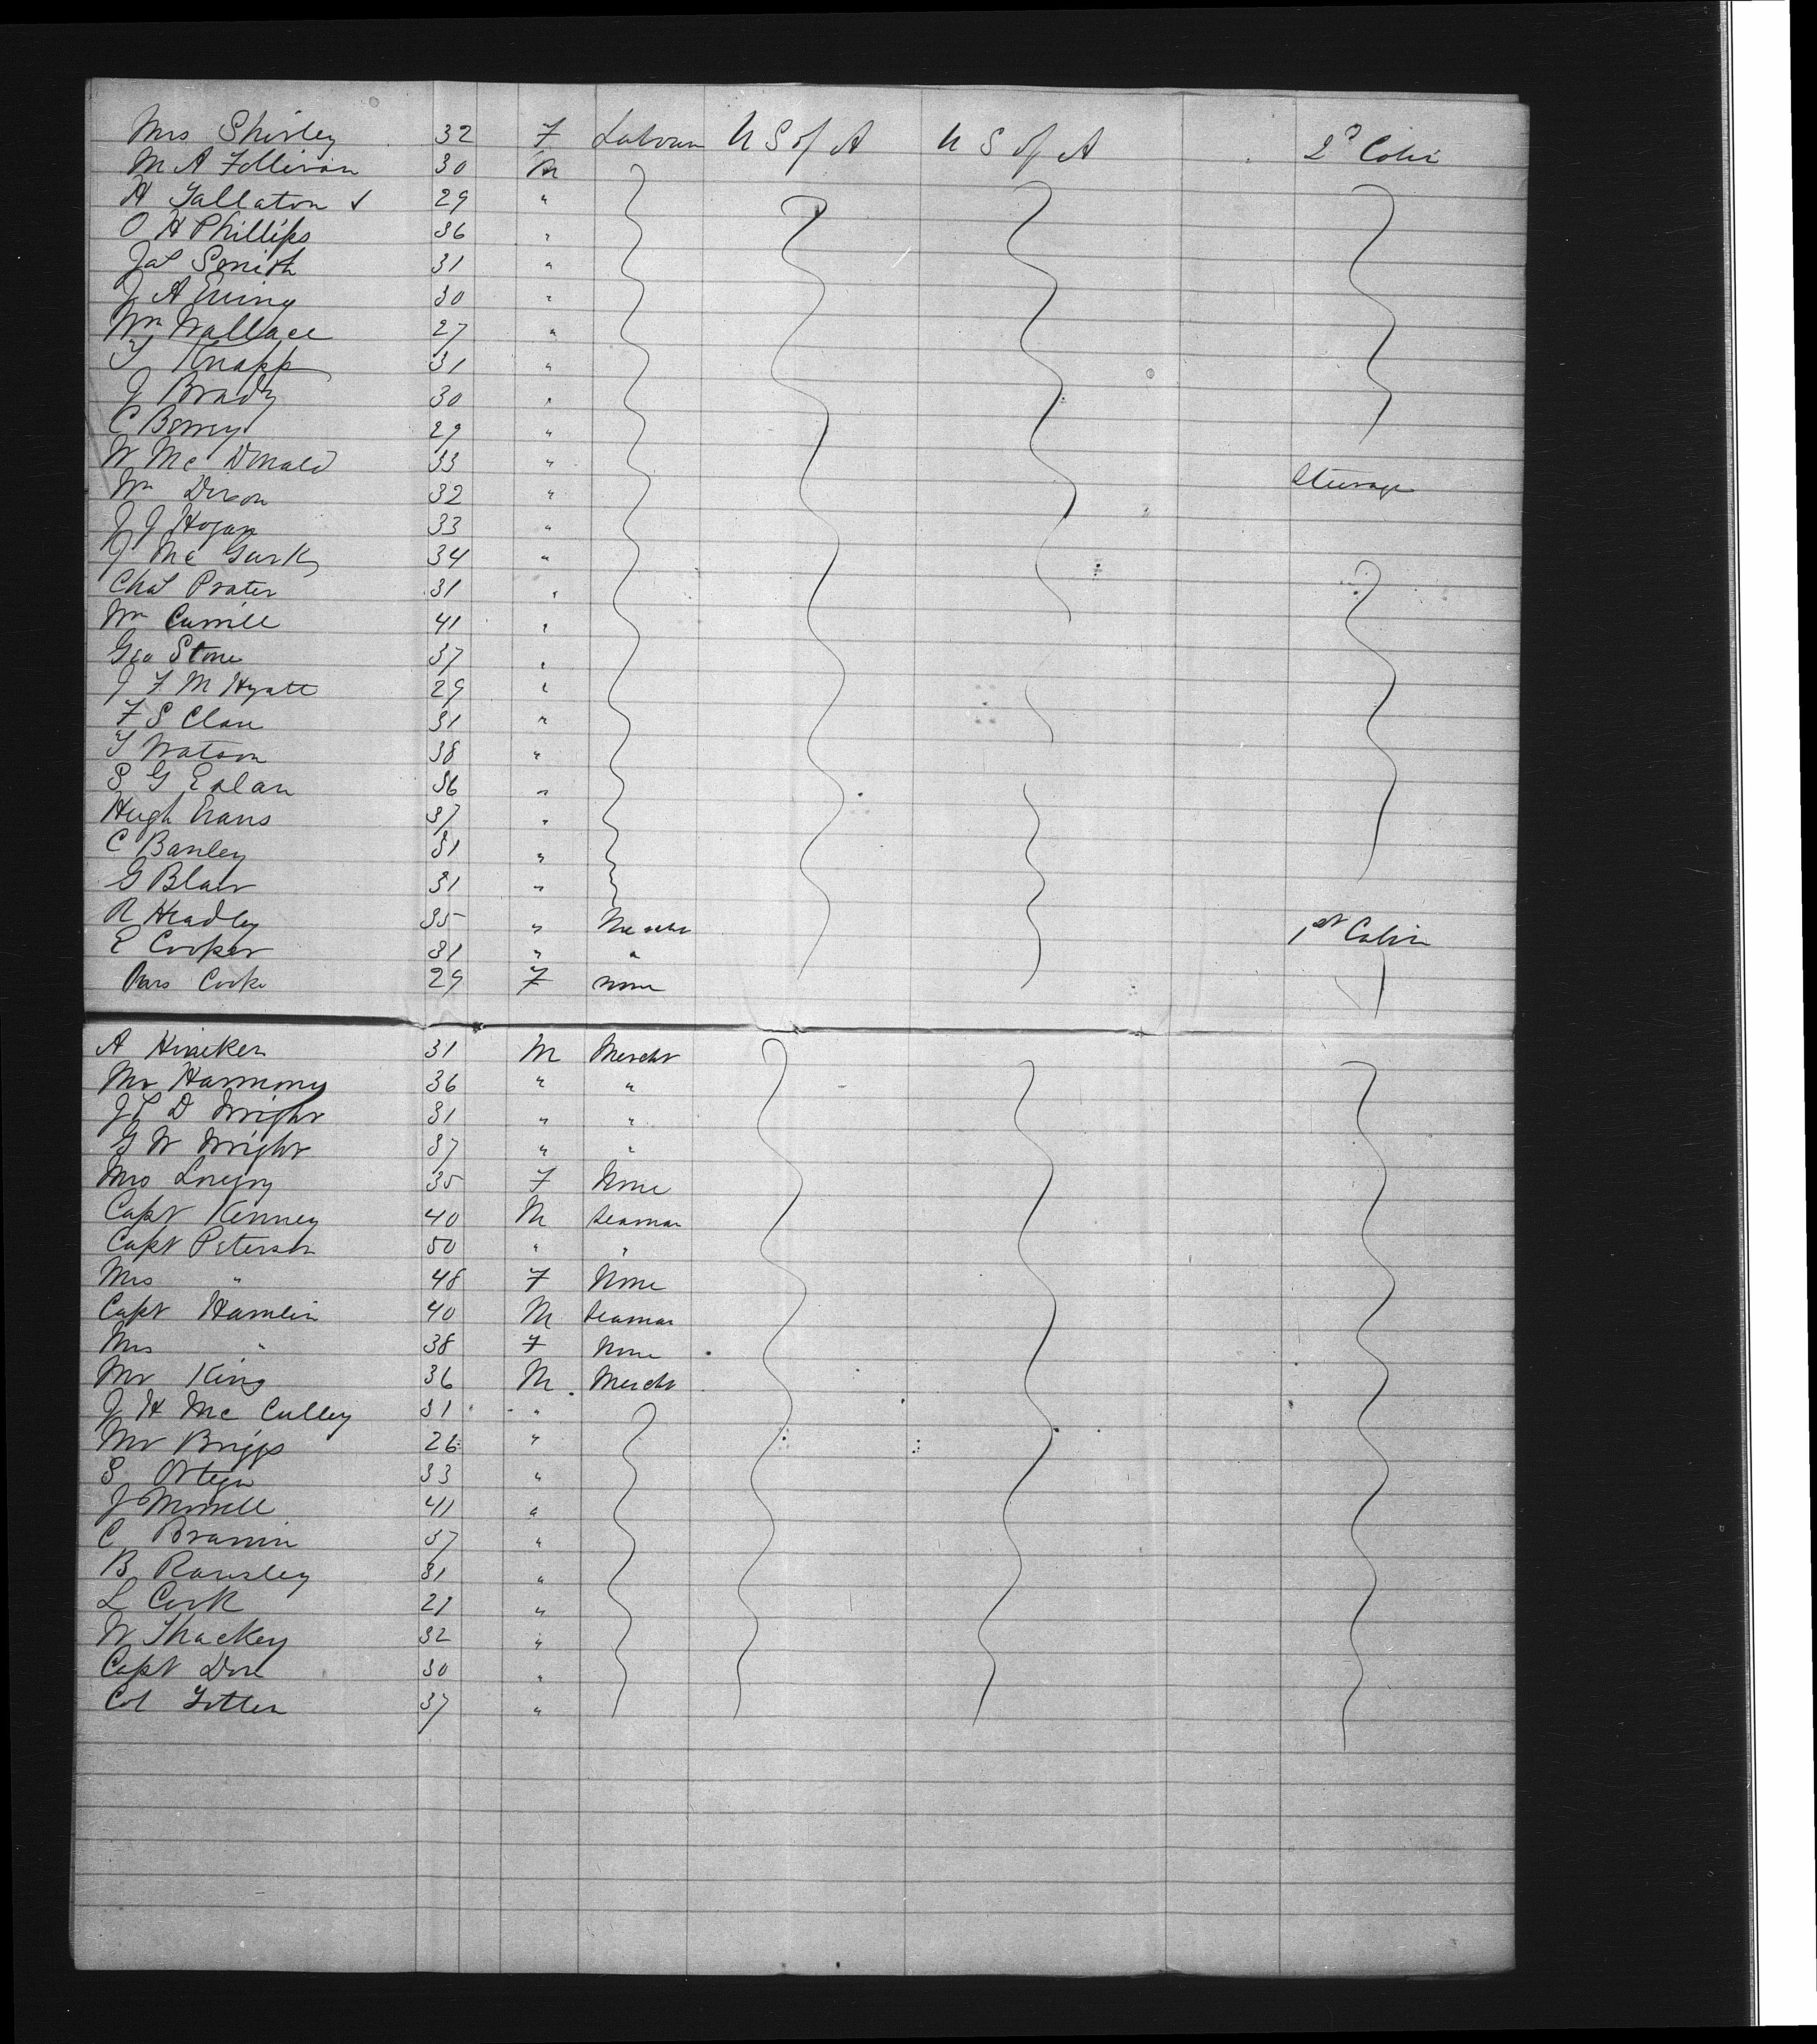 Mrs Shirley 32 F Labourer U S of A U S of A 2d Cabin
M A Follivan 30 M
H Tallaton √ 29 "
O H Phillips 36 "
Jas Smith 31 "
J A Ewing 30 "
Wm Wallace 27 "
T Knapp 31 "
J Brady 30 "
C Berrey 29 "
W Mc Donald 33 "
Wm Dixon 32 " Steerage
J J Hogan 33 "
J Mc Gurk 34 "
Chas Prater 31 "
Wm Currill 41 "
Geo Stone 37 "
J F M Hyatt 29 "
F S Clare 31 "
T Watson 38 "
S G 36 "
Hugh Evans 37 "
C Banley 31 "
G Blair 31 "
R Headley 35 " Mercht 1st Cabin
E Cooper 31 " "
Mrs Cooke 29 F none
A Hineken 31 M Mercht
Mr Harmony 36 " "
J D Wright 31 " "
G W Wright 37 " "
Mrs 35 F None
Capt Kenney 40 M Seaman
Capt Peterson 50 " "
Mrs " 48 F None
Capt Hamlin 40 M Seaman
Mrs " 38 F None
Mr King 36 M Mercht
J H Mc Culley 31 "
Mr Briggs 26 "
S Ortega 33 "
J Morrell 41 "
C 37 "
B Ransley 31 "
L Cork 29 "
W Thackey 32 "
Capt Dore 30 "
Col Totten 37 "